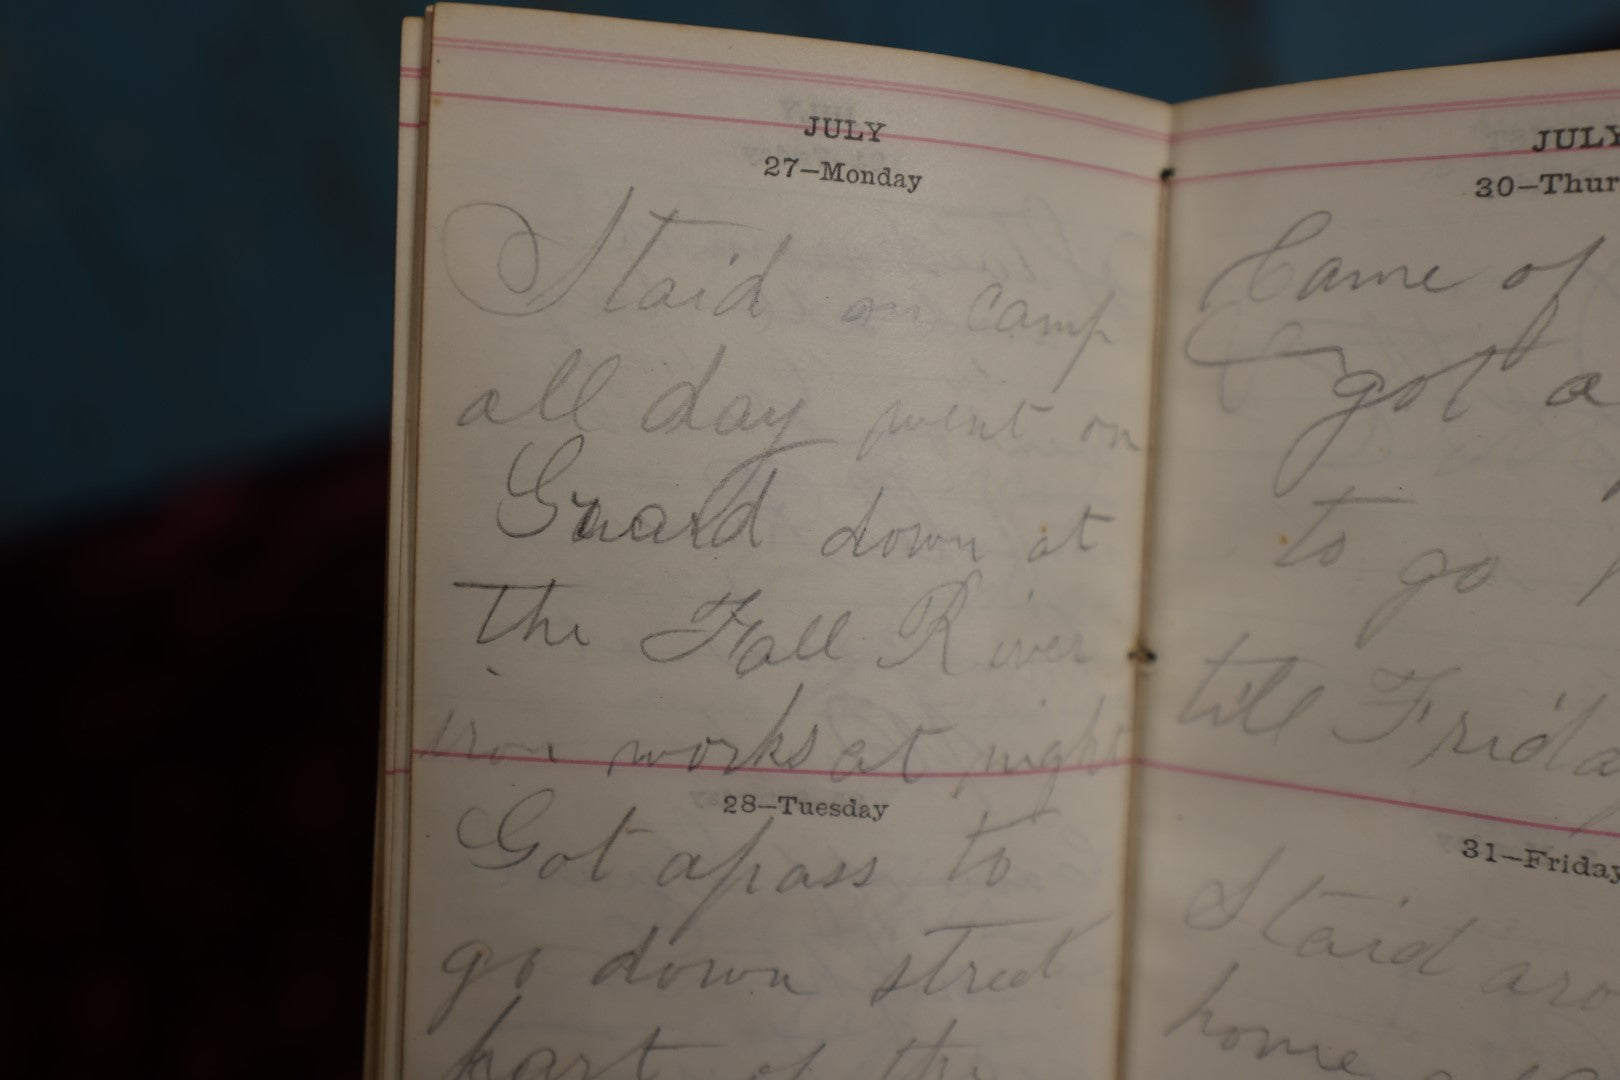 JULY
27—Monday
Staid on camp
all day went on
Guard down at
the Fall River
iron works at night
28—Tuesday
Got a pass to
go down street
part of the
JULY
30—Thur
Came of
got a
to go
till Frida
31—Friday
Staid aro
home